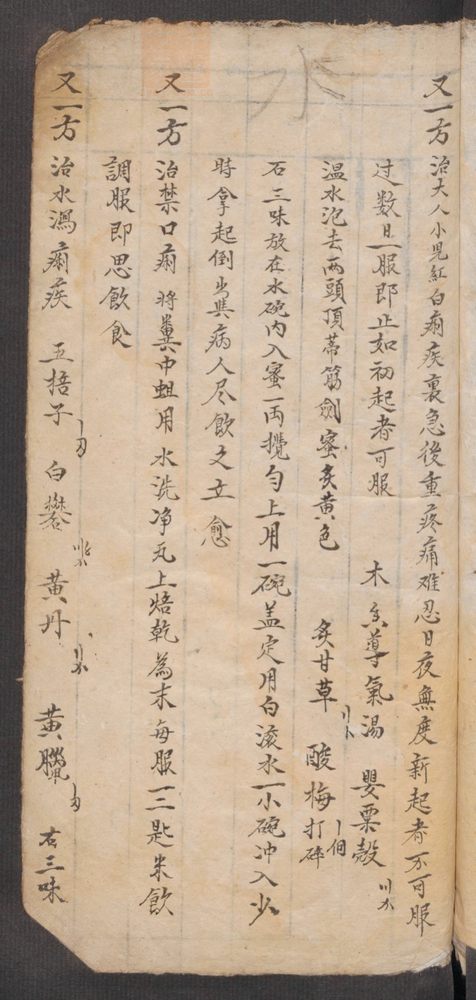 水
又一方 治大人小児紅白痢疾裏急後重疼痛难忍日夜無度新起者不可服
过数日一服即止如初起者可服 木香導氣湯 嬰粟殼
温水泡去两頭頂蒂筋 蜜炙黄色 炙甘草 酸梅打碎 一個
石三味放在水碗内入蜜一両攪勻上用一碗盖定用白滚水一小碗冲入少
時拿起倒出與病人尽飲之立愈
又一方 治禁口痢 將糞中蛆用水洗净瓦上焙乾為末每服一二匙米飲
調服即思飲食
又一方 治水瀉痢疾 五掊子 白礬 黄丹 黄臘 右三味